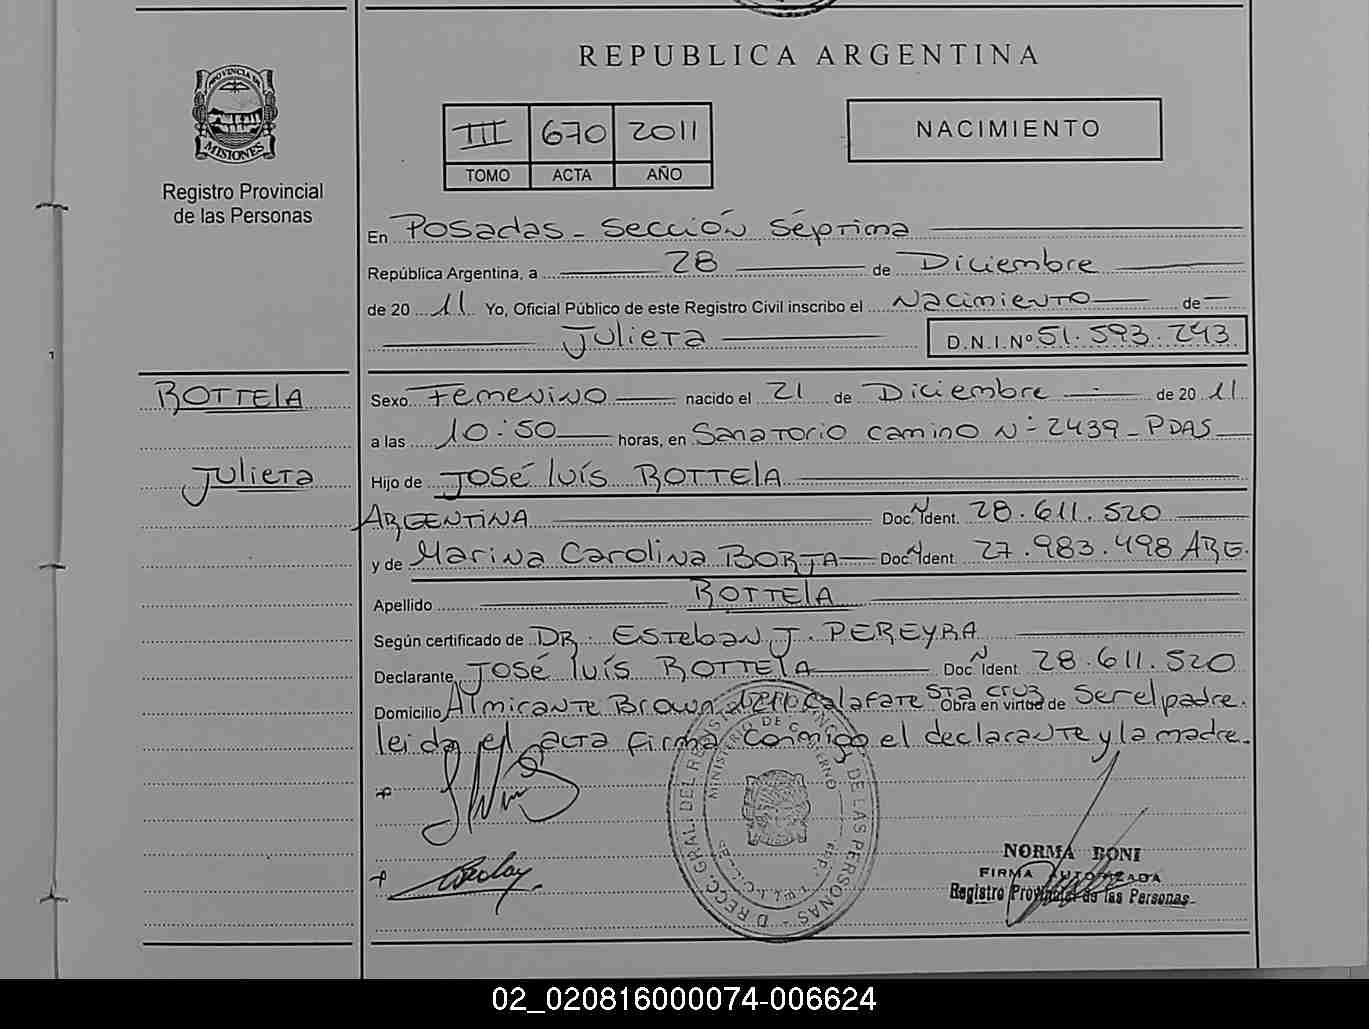 REPUBLICA ARGENTINA
PROVINCIA DE
MISIONES
Registro Provincial
de las Personas
III 670 2011
TOMO ACTA AÑO
NACIMIENTO
En Posadas - Sección Séptima
República Argentina, a 28 de Diciembre
de 20 11 Yo, Oficial Público de este Registro Civil inscribo el Nacimiento de
Julieta D.N.I.Nº 51.593.243
ROTTELA
Julieta
Sexo Femenino nacido el 21 de Diciembre de 20 11
a las 10:50 horas, en Sanatorio camino Nº 2439 - PDAS
Hijo de José Luís ROTTELA
ARGENTINA Doc. N Ident. 28.611.520
y de Marina Carolina BORJA Doc. N Ident. 27.983.498 ARG.
Apellido ROTTELA
Según certificado de DR. Esteban J. PEREYRA
Declarante José Luís ROTTELA Doc. N Ident. 28.611.520
Domicilio Almirante Brown 1211 Calafate Sta Cruz Obra en virtud de Ser el padre.
leida el acta firma conmigo el declarante y la madre.
DE LAS PERSONAS
NORMA BONI
FIRMA AUTORIZADA
Registro Provincial de las Personas
02_020816000074-006624